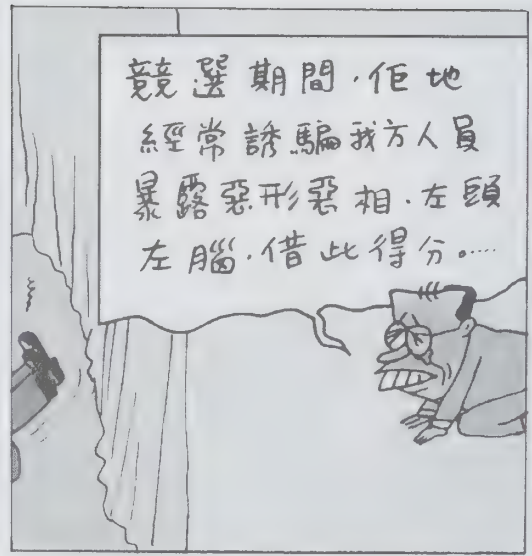 競選期間·佢地
經常誘騙我方人員
暴露惡形惡相·左頭
左腦·借此得分。……